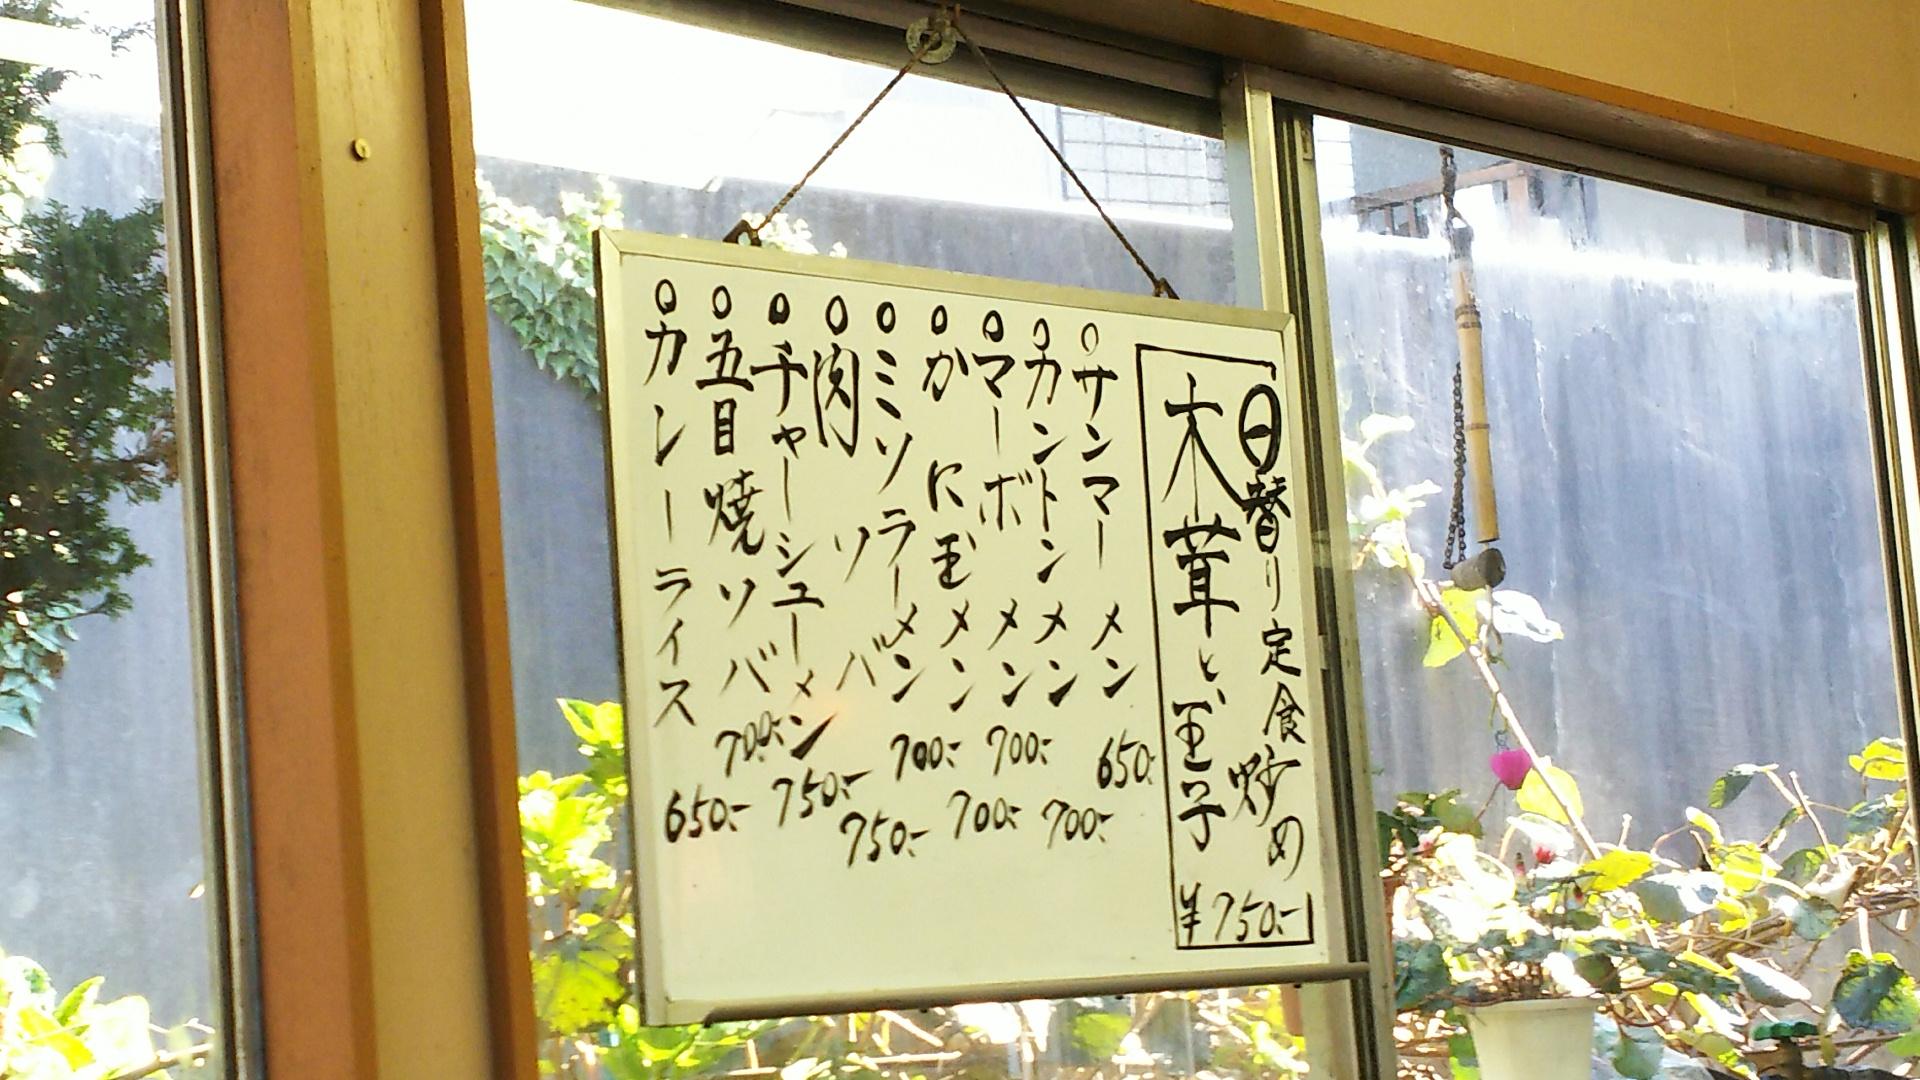 日替り定食
木茸と玉子炒め ¥750-
サンマーメン 650-
カントンメン 700-
マーボメン 700-
かに玉メン 700-
ミソラーメン 700-
肉ソバ 750-
チャーシューメン 750-
五目焼ソバ 700-
カレーライス 650-